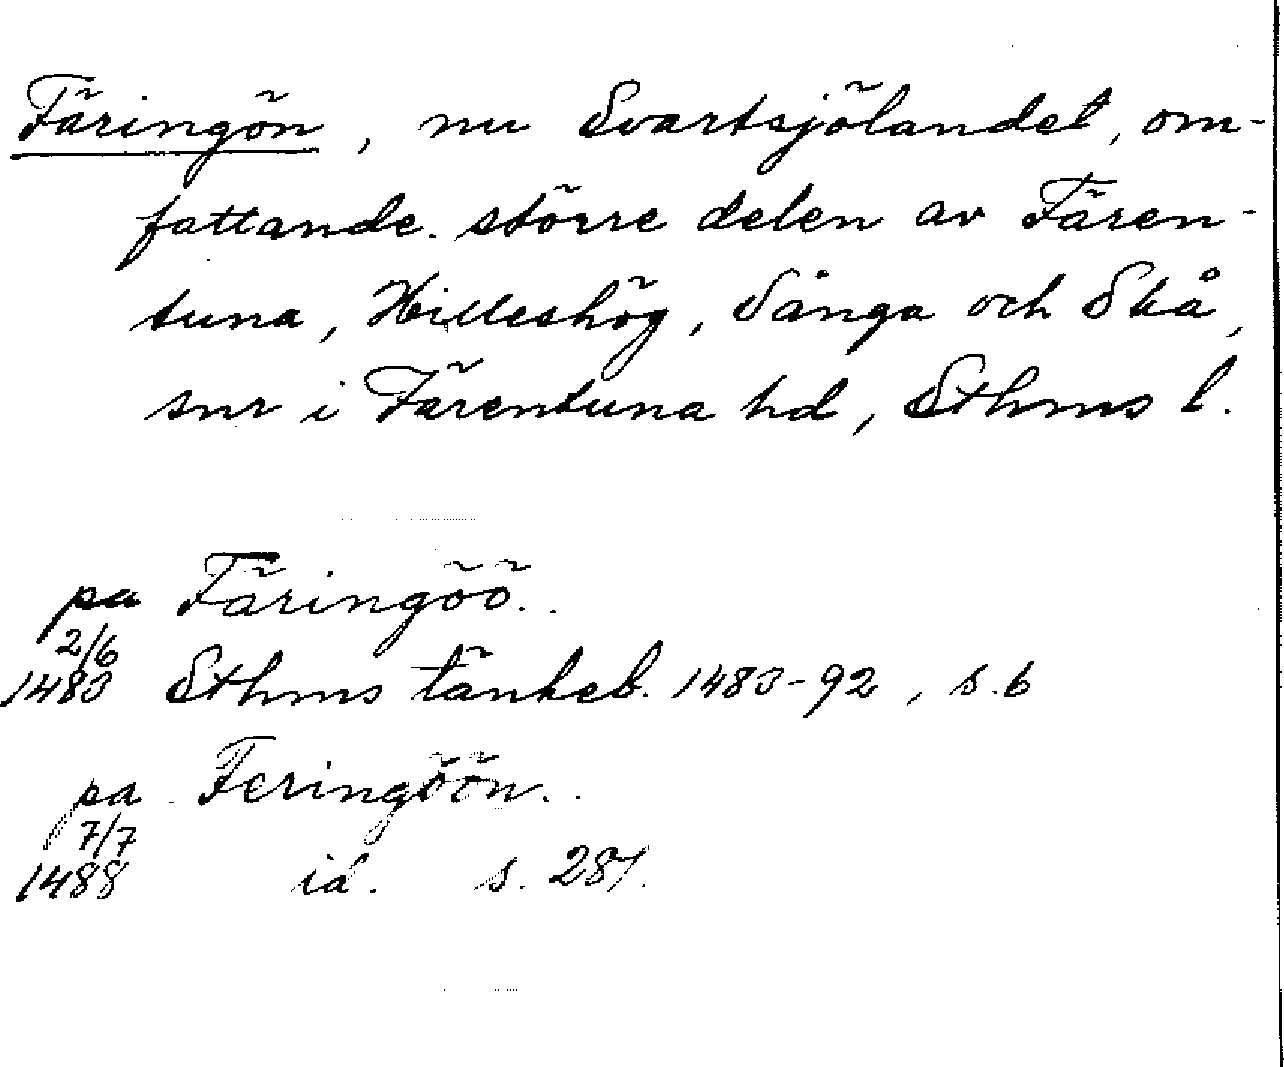 Färingön, nu Svartsjölandet, om-
fattande större delen av Fären-
tuna, Hilleshög, Sånga och Skå,
snr i Färentuna hd, Sthms l.
pa Färingöö..
2/6
1483 Sthms tänkeb. 1483-92, s. 6
pa Feringöön..
7/7
1488 id. s. 287.